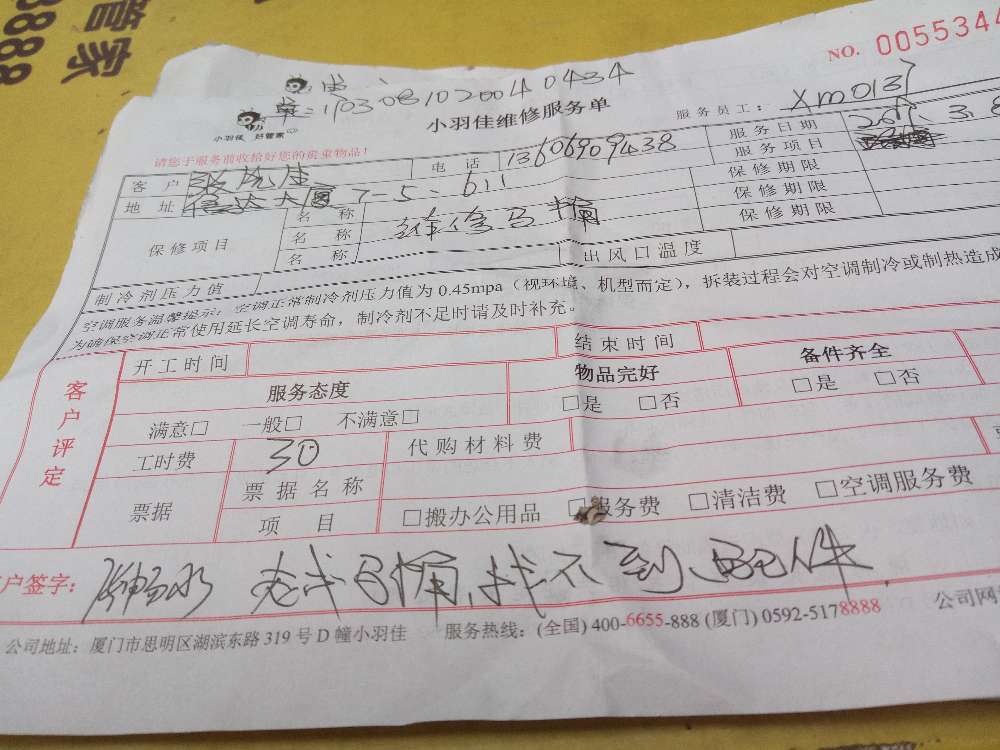 管家
8888
NO. 0055344
单:170308102004 0434
小羽佳 好管家
小羽佳维修服务单
服务员工: XM0137
请您于服务前收拾好您的贵重物品!
客户 电话 13606909438 服务日期 3.8
地址 信达大厦 7-5-611 服务项目
保修项目 名称 维修马桶 保修期限
名称 保修期限
名称 保修期限
制冷剂压力值 出风口温度
空调服务温馨提示:空调正常制冷剂压力值为 0.45mpa(视环境、机型而定),拆装过程会对空调制冷或制热造成
为确保空调正常使用延长空调寿命,制冷剂不足时请及时补充。
客户评定
开工时间 结束时间
服务态度 物品完好 备件齐全
满意□ 一般□ 不满意□ □是 □否 □是 □否
工时费 30 代购材料费
票据 票据名称
项目 □搬办公用品 □服务费 □清洁费 □空调服务费
户签字: 老式马桶,找不到配件.
公司地址:厦门市思明区湖滨东路 319 号 D 幢小羽佳 服务热线:(全国) 400-6655-888 (厦门) 0592-5178888 公司网